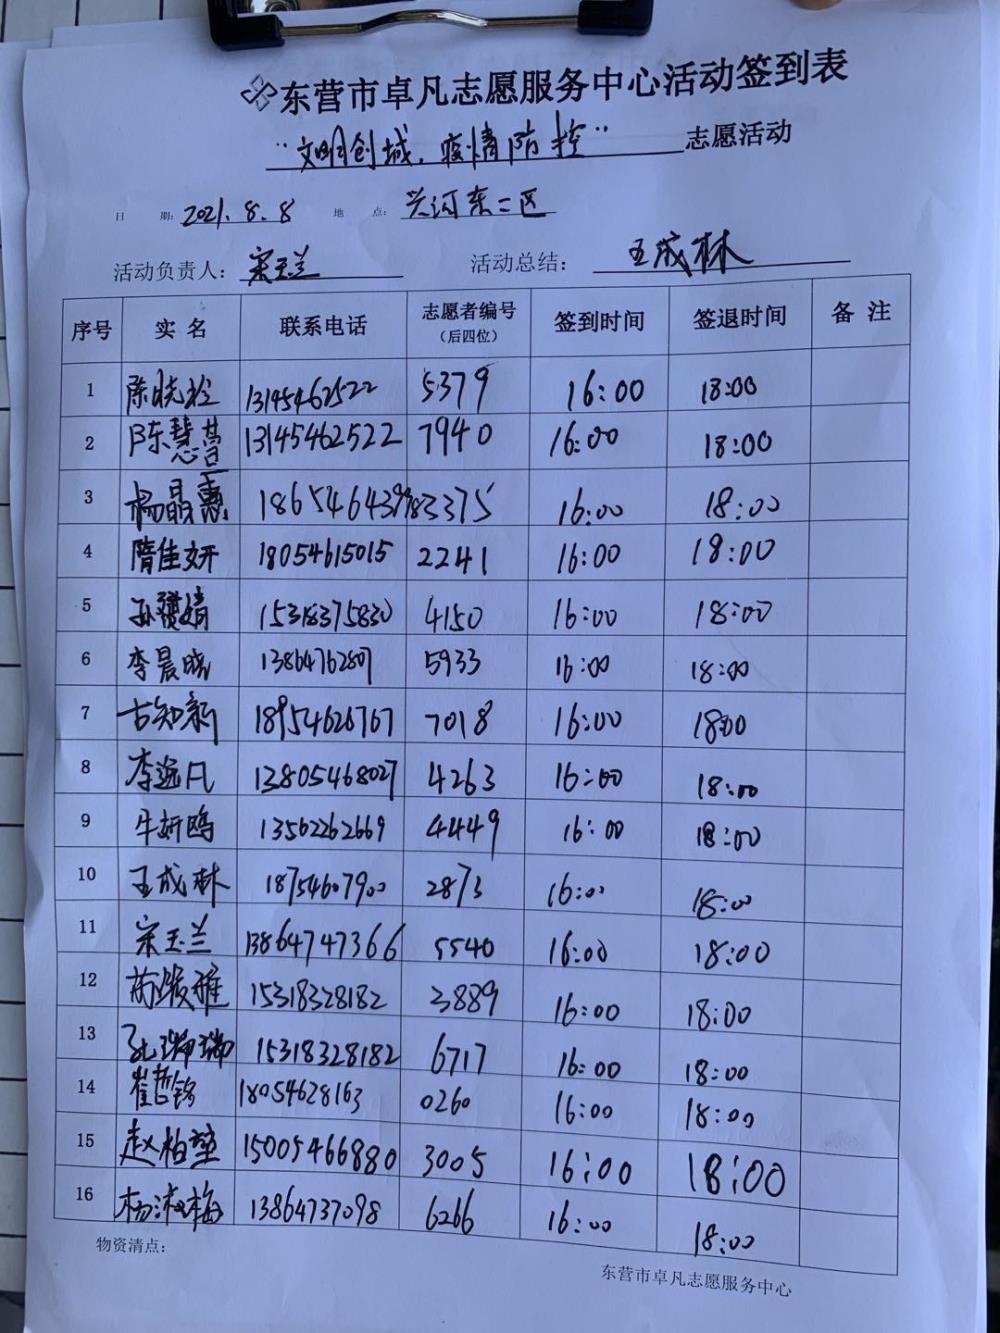 东营市卓凡志愿服务中心活动签到表
“文明创城.疫情防控”志愿活动
日 期: 2021.8.8 地 点: 兴河东二区
活动负责人: 宋玉兰 活动总结: 王成林
序号 实名 联系电话 志愿者编号(后四位) 签到时间 签退时间 备注
1 陈晓 13145462522 5379 16:00 18:00
2 陈慧营 13145462522 7940 16:00 18:00
3 杨晶惠 3375 16:00 18:00
4 隋佳妍 18054615015 2241 16:00 18:00
5 孙 婧 15318375830 4150 16:00 18:00
6 李晨晓 13864762807 5933 16:00 18:00
7 古知新 18954626767 7018 16:00 18:00
8 李逸凡 13805468027 4263 16:00 18:00
9 牛妍鸥 13562262669 4449 16:00 18:00
10 王成林 18754607900 2873 16:00 18:00
11 宋玉兰 13864747366 5540 16:00 18:00
12 雅 15318328182 3889 16:00 18:00
13 孔瑞瑞 15318328182 6717 16:00 18:00
14 崔哲铭 18054628163 0260 16:00 18:00
15 赵柏堃 15005466880 3005 16:00 18:00
16 杨淑梅 13864737098 6266 16:00 18:00
物资清点:
东营市卓凡志愿服务中心